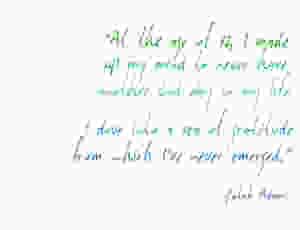 "At the age of 12, I made
up my mind to never have
another bad day in my life.
I dove into a sea of gratitude
from which I've never emerged."
Patch Adams